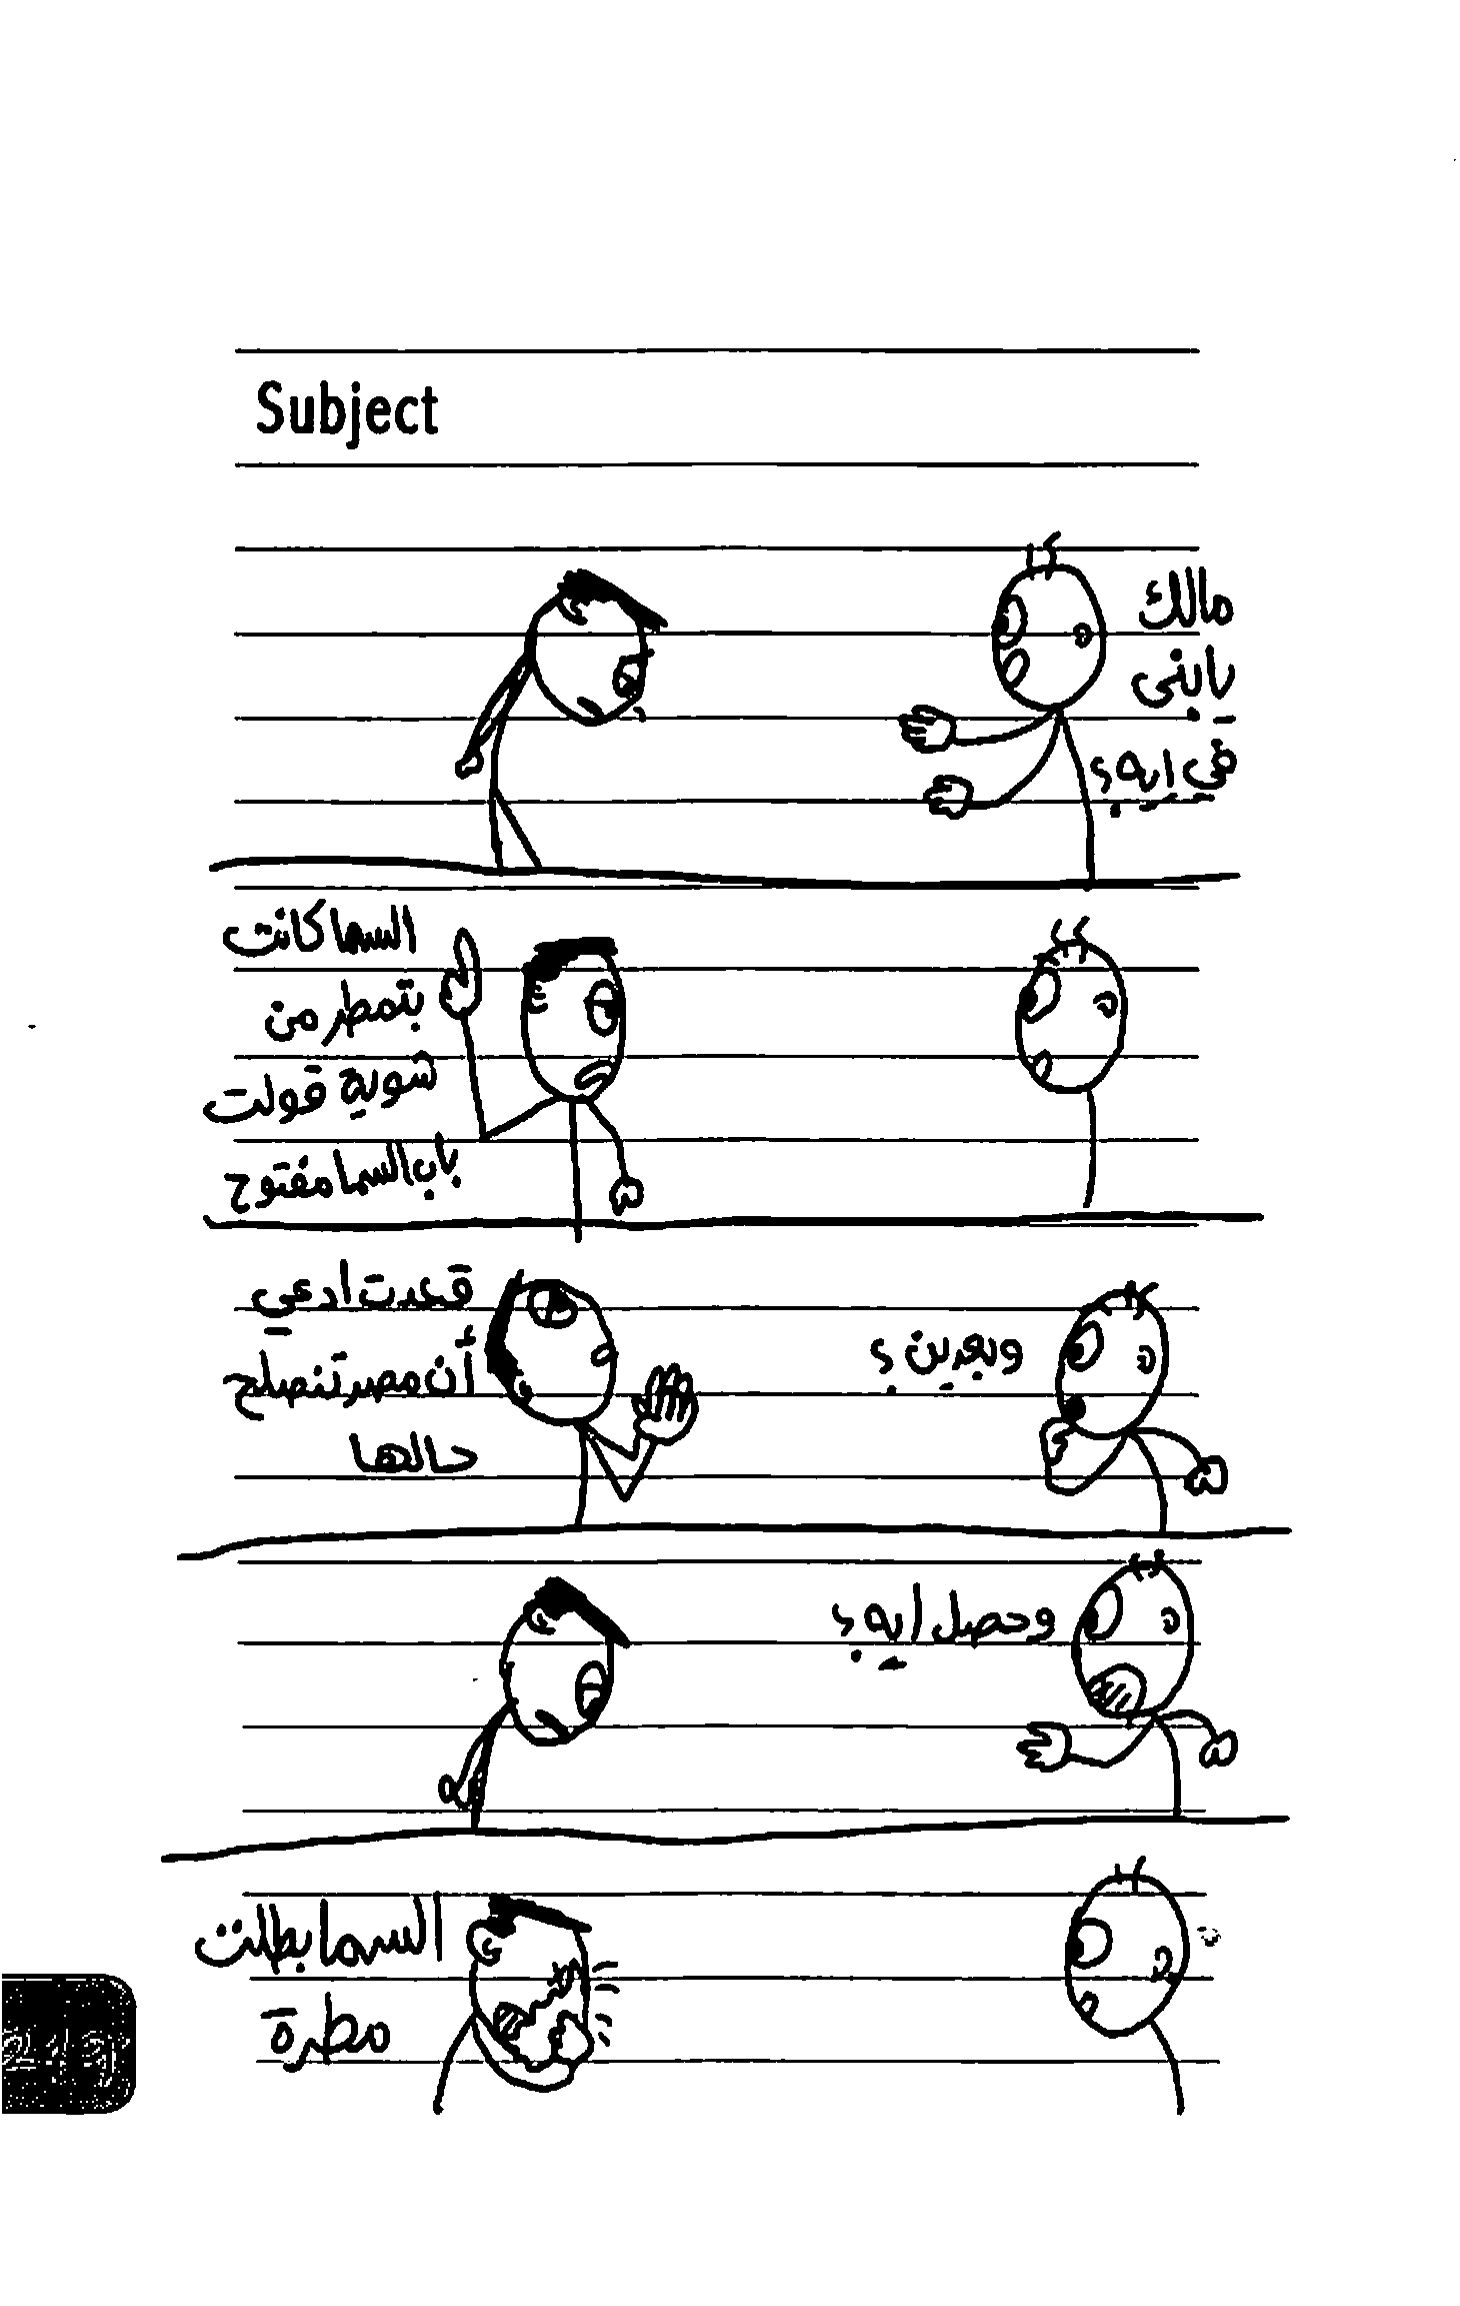 Subject
مالك
يابني
في ايه؟
السما كانت
بتمطر من
شوية قولت
باب السما مفتوح
وبعدين؟
قعدت ادعي
أن مصر تنصلح
حالها
وحصل ايه؟
السما بطلت
مطرة